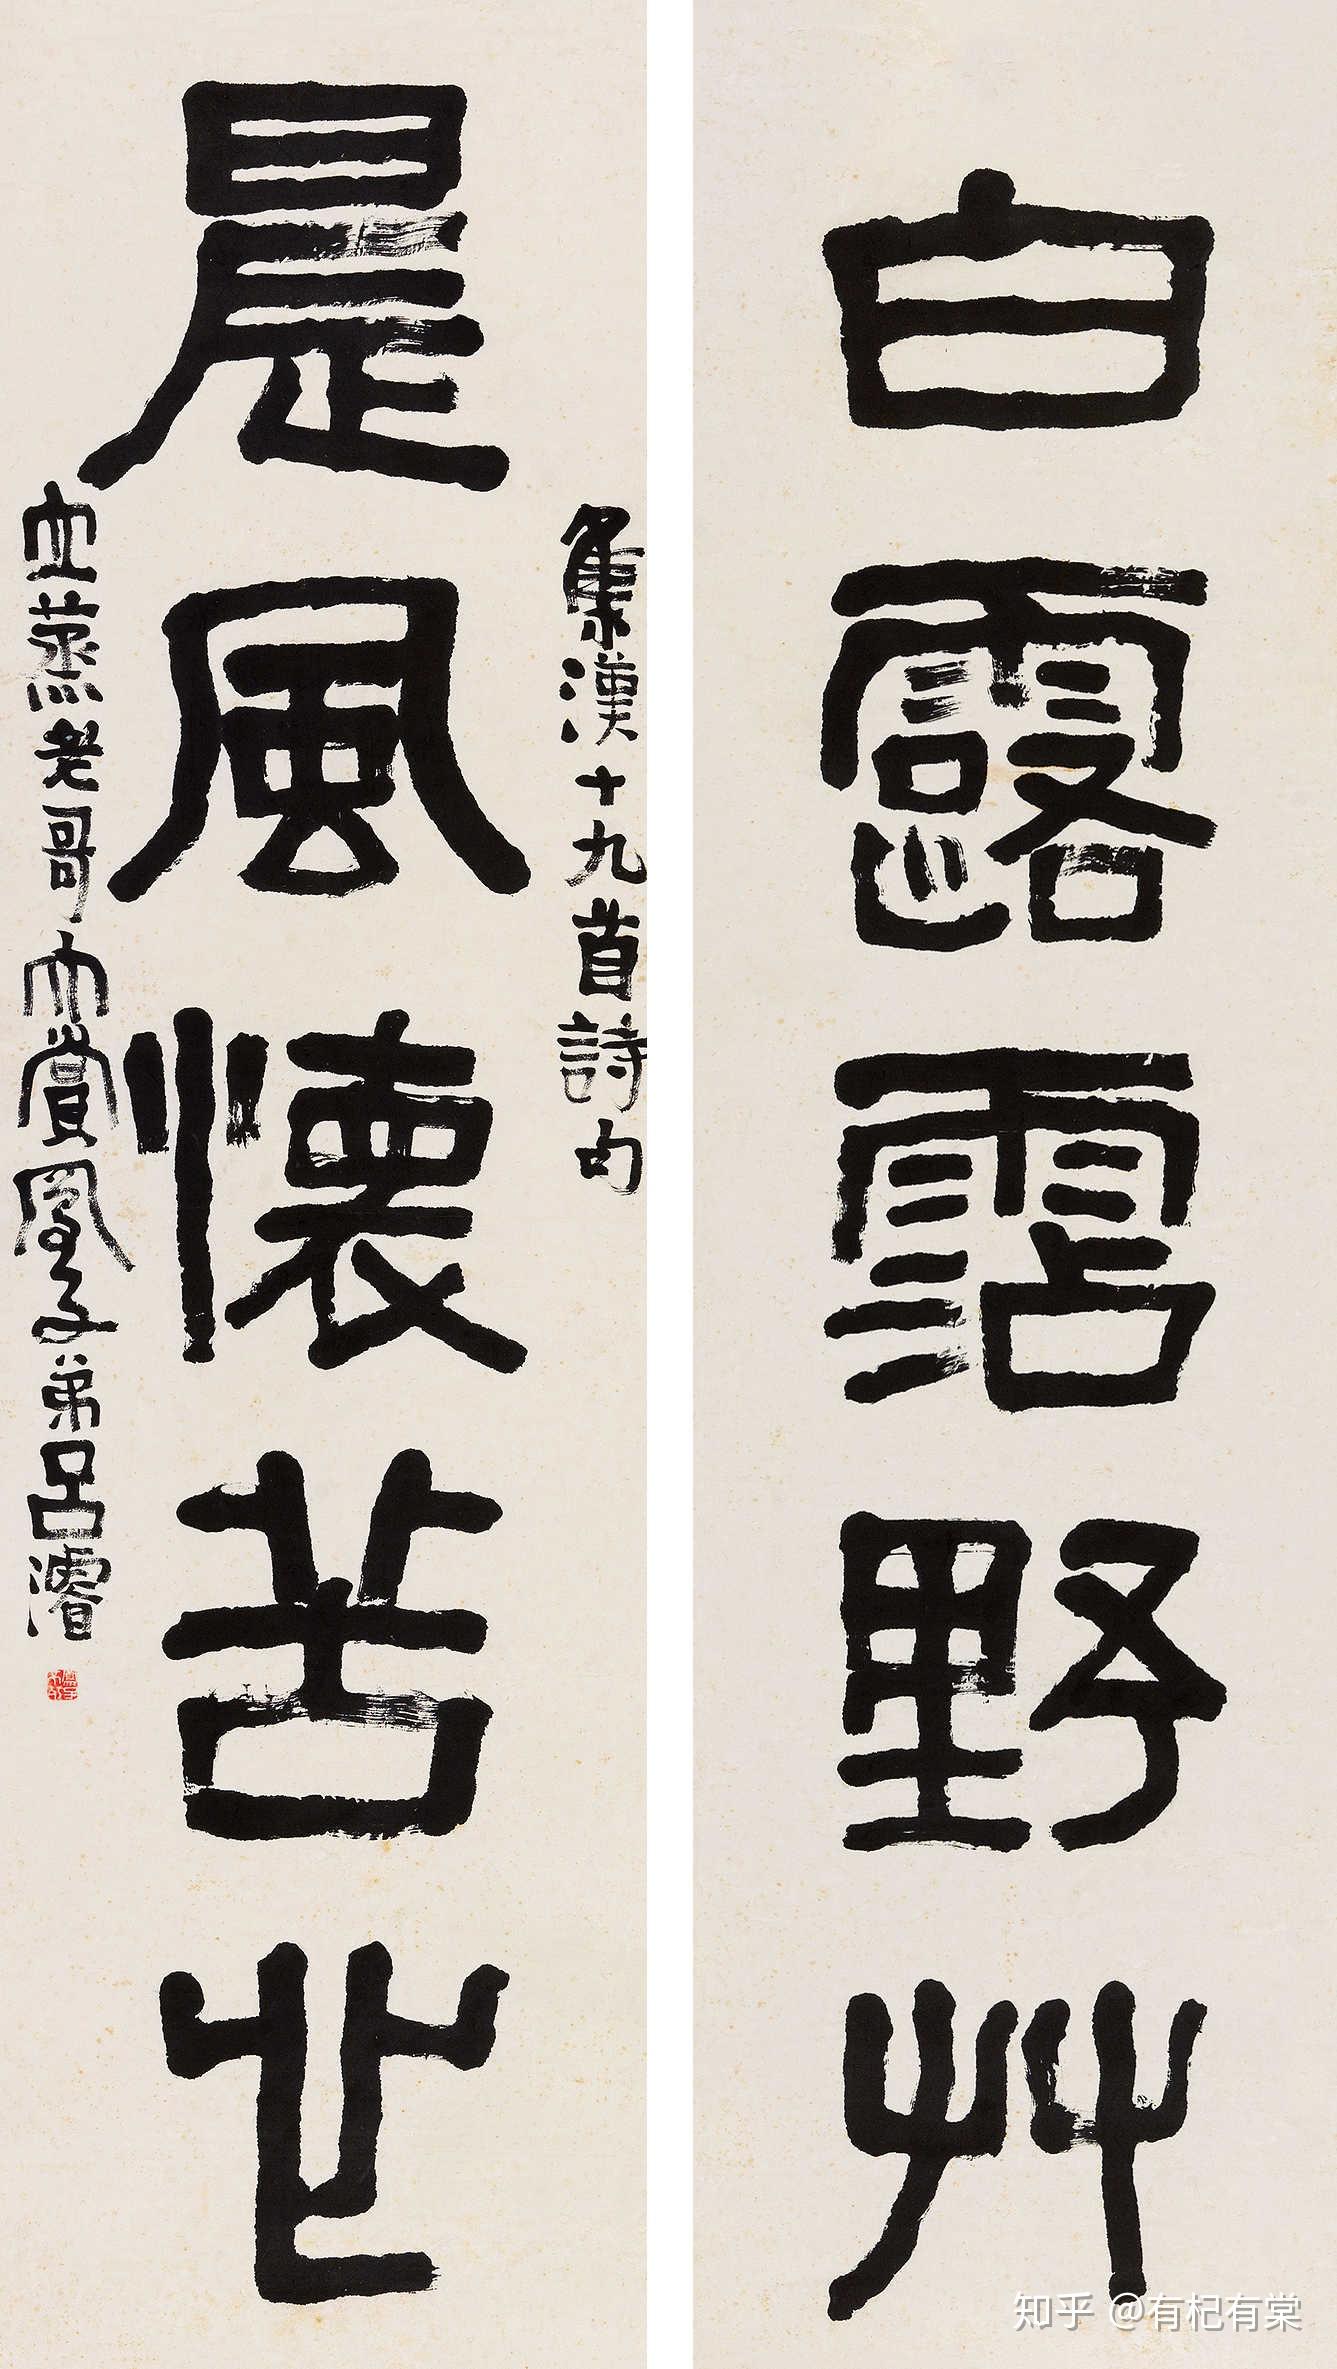 白露霑野艸
晨風懷苦心
集漢十九首詩句
立蒸老哥大賞鳳子弟呂濬
知乎 @有杞有棠